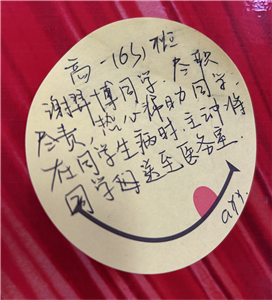 高一(6)班
谢羿博同学 尽职
尽责 热心帮助同学.
在同学生病时,主动将
同学 送至医务室.